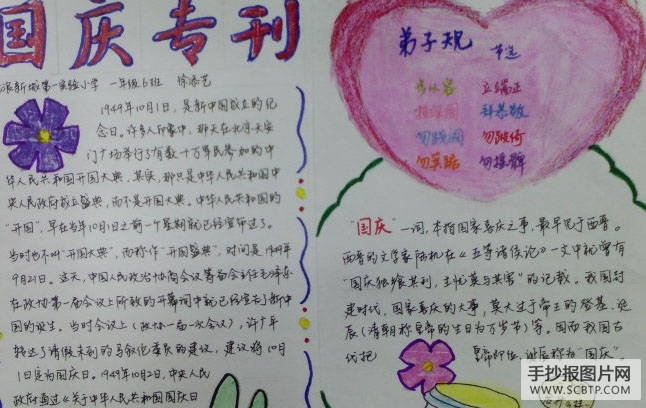 国庆专刊
新城第一实验小学 一年级6班 徐添艺
1949年10月1日，是新中国成立的纪
念日。许多人印象中，那天在北京天安
门广场举行了有数十万军民参加的中
华人民共和国开国大典。其实，那只是中华人民共和国中
央人民政府成立盛典，而不是开国大典。中华人民共和国的
“开国”，早在当年10月1日之前一个星期就已经宣布过了。
当时也不叫“开国大典”，而称作“开国盛典”，时间是1949年
9月21日。这天，中国人民政治协商会议筹备会主任毛泽东
在政协第一届会议上所致的开幕词中就已经宣布新中
国的诞生。当时会议上（政协一届一次会议），许广平
转达了请假未到的马叙伦委员的建议，建议将10月
1日定为国庆日。1949年10月2日，中央人民
政府通过《关于中华人民共和国国庆日
弟子规 节选
步从容 立端正
揖深圆 拜恭敬
勿践阈 勿跛倚
勿箕踞 勿摇髀
“国庆”一词，本指国家喜庆之事，最早见于西晋。
西晋的文学家陆机在《五等诸侯论》一文中就曾有
“国庆独飨其利，主忧莫与其害”的记载。我国封
建时代，国家喜庆的大事，莫大过于帝王的登基、诞
辰（清朝称皇帝的生日为万岁节）等。因而我国古
代把 皇帝即位、诞辰称为“国庆”。
手抄报图片网
WWW.SCBTP.COM